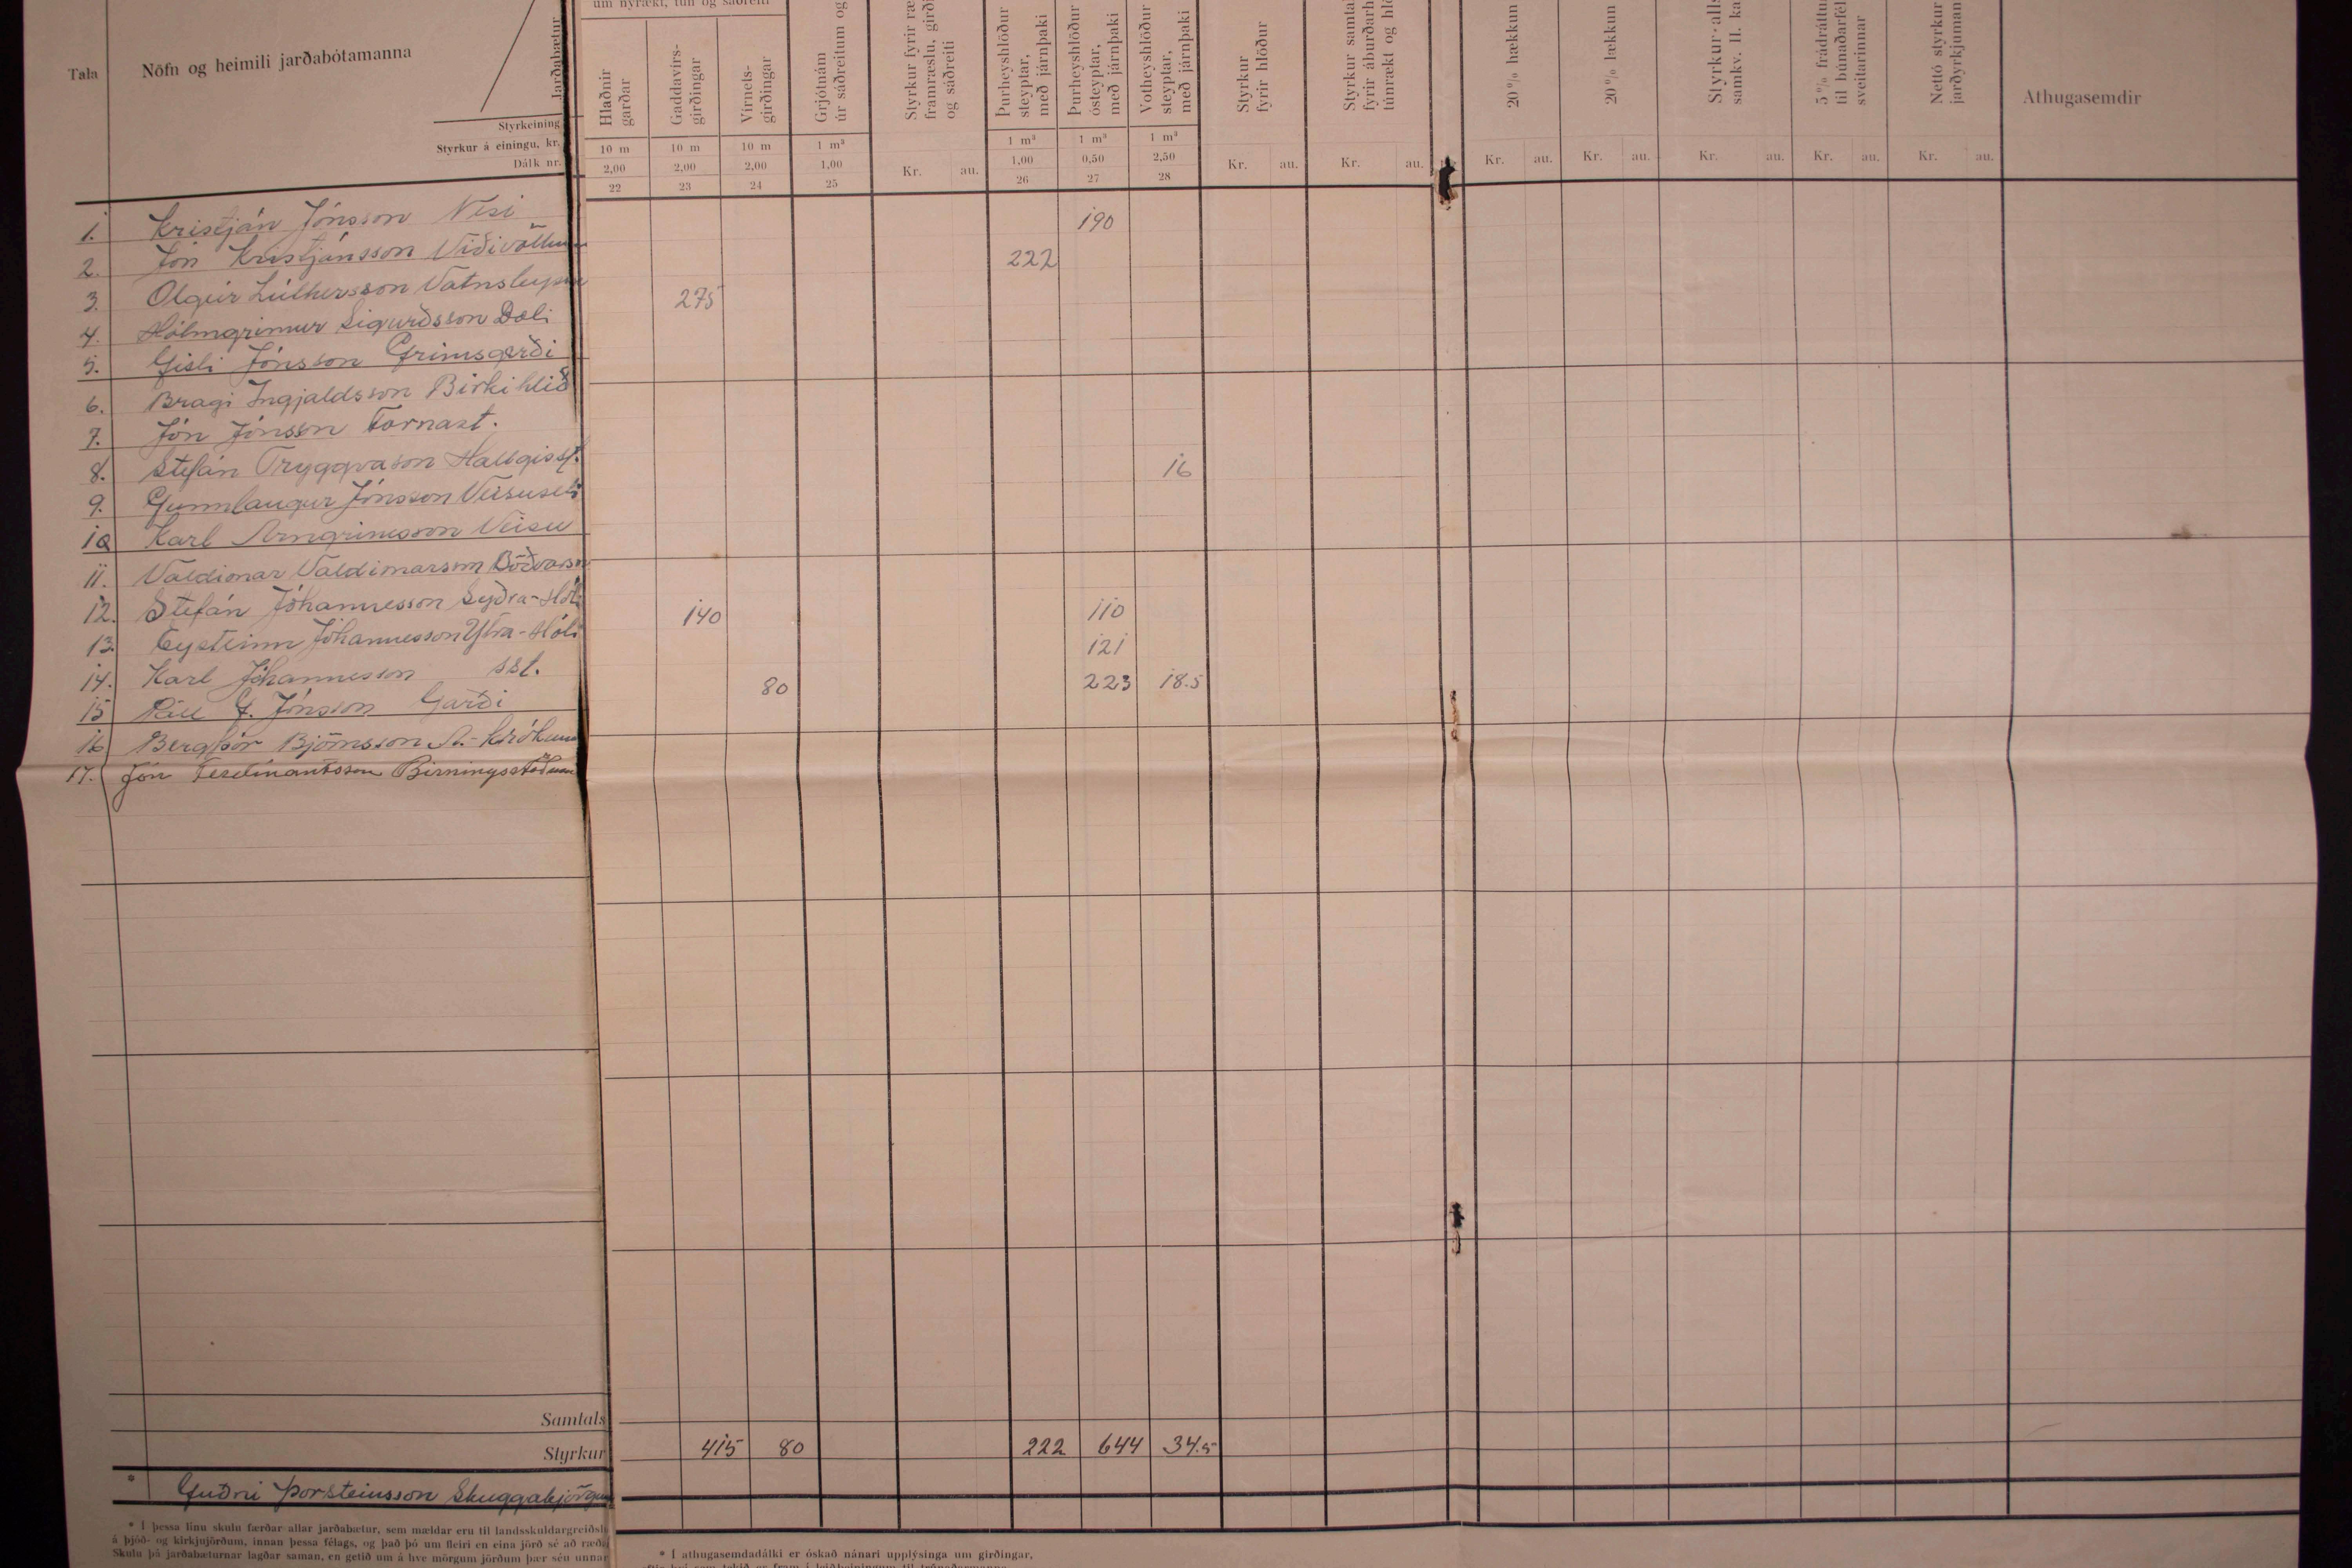 um nýrækt, tún og sáðreiti
Tala
Nöfn og heimili jarðabótamanna
Jarðabætur
Styrkeining
Styrkur á einingu, kr.
Dálk nr.
Hlaðnir garðar
10 m
2,00
22
Gaddavírs-girðingar
10 m
2,00
23
Vírnets-girðingar
10 m
2,00
24
Grjótnám úr sáðreitum og
1 m³
1,00
25
Styrkur fyrir
framræslu,
og sáðreiti
Kr. au.
Þurheyshlöður steyptar, með járnþaki
1 m³
1,00
26
Þurheyshlöður ósteyptar, með járnþaki
1 m³
0,50
27
Votheyshlöður steyptar, með járnþaki
1 m³
2,50
28
Styrkur fyrir hlöður
Kr. au.
Styrkur
fyrir
túnrækt og
Kr. au.
20 % hækkun
Kr. au.
20 % lækkun
Kr. au.
Styrkur
samkv. II.
Kr. au.
5 %
til
sveitarinnar
Kr. au.
Nettó styrkur
Kr. au.
Athugasemdir
1. Kristján Jónsson Nesi 190
2. Jón Kristjánsson 222
3. Olgeir Lúthersson 275
4. Hólmgrímur Sigurðsson Dæli
5. Gísli Jónsson Grímsgerði
6. Bragi Ingjaldsson Birkihlíð
7. Jón Jónsson Fornast.
8. Stefán Tryggvason 16
9. Gunnlaugur Jónsson Veisuseli
10 Karl Arngrímsson Veisu
11. Valdimar Valdimarsson
12. Stefán Jóhannesson Syðra-Hóli 140 110
13. Eysteinn Jóhannesson Ytra-Hóli 121
14. Karl Jóhannesson sst. 80 223 18.5
15 Páll G. Jónsson Garði
16 Bergþór Björnsson
17. Jón Ferdinantsson Birningsstöðum
Samtals
Styrkur 415 80 222 644 34.5
* Guðni Þorsteinsson
* Í þessa línu skulu færðar allar jarðabætur, sem mældar eru til
á þjóð- og kirkjujörðum, innan þessa félags, og það þó um fleiri en eina jörð sé að
Skulu þó jarðabæturnar lagðar saman, en getið um á hve mörgum jörðum þær séu unnar
* Í athugasemdadálki er óskað nánari upplýsinga um girðingar,